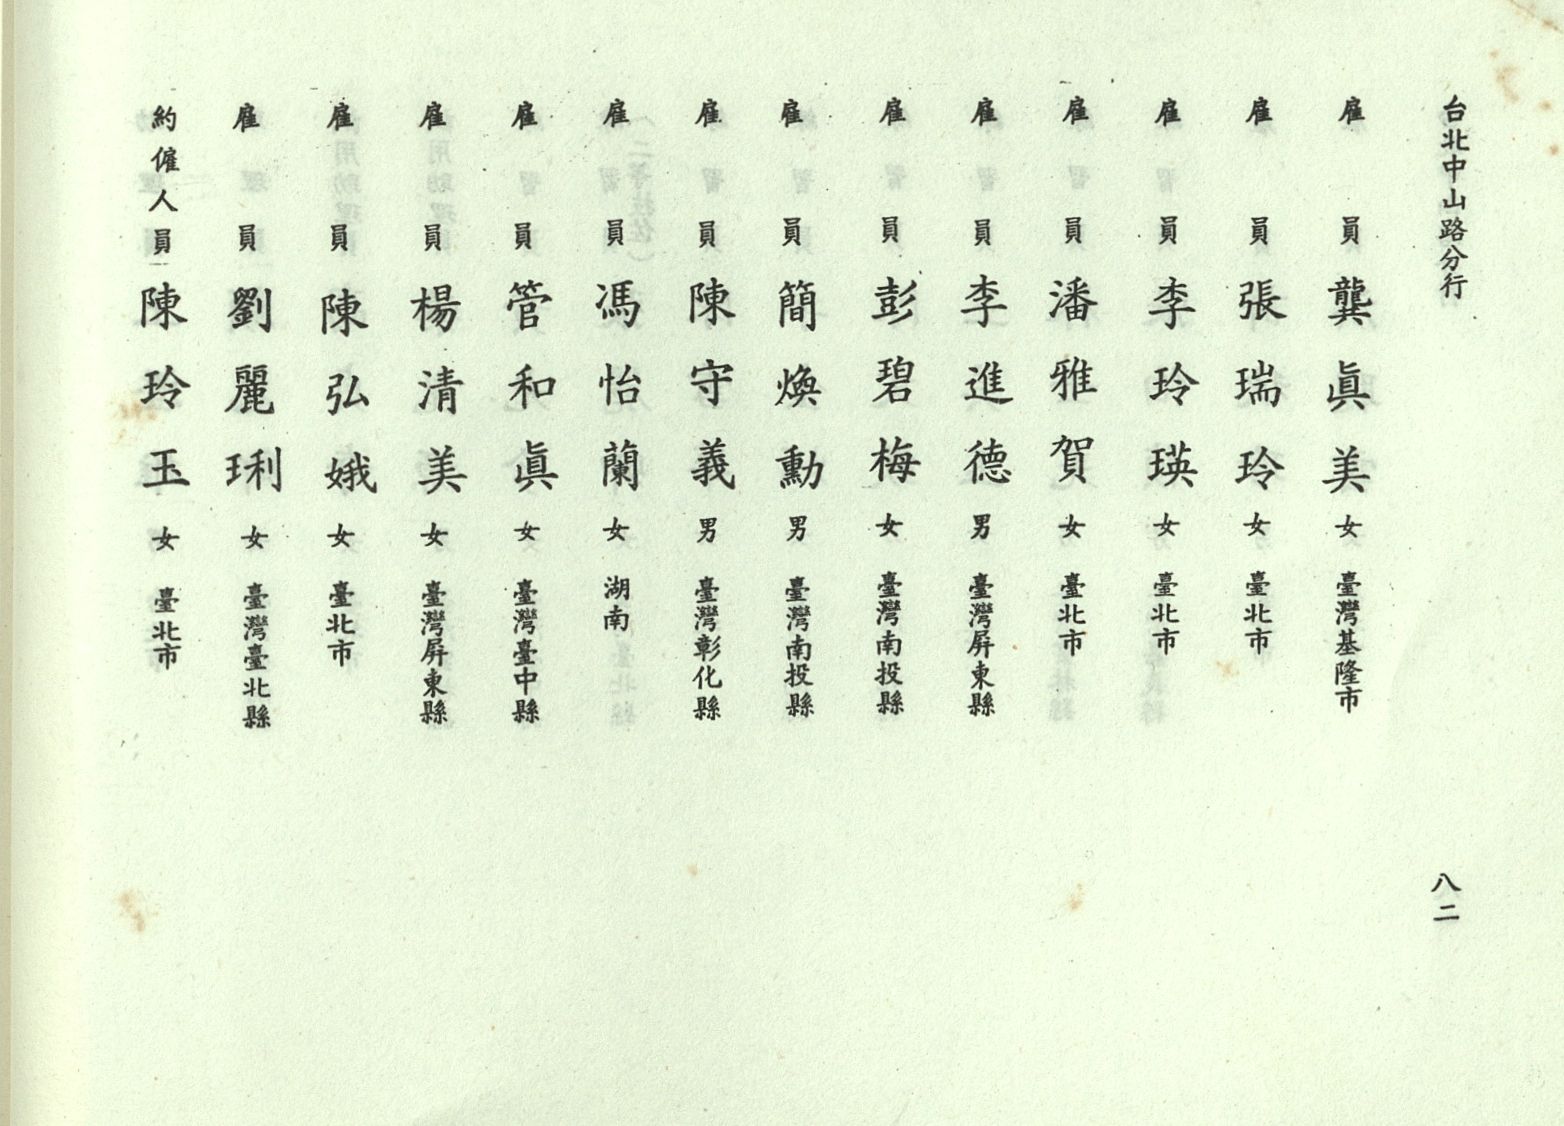 台北中山路分行
八二
雇員 龔眞美 女 臺灣基隆市
雇員 張瑞玲 女 臺北市
雇員 李玲瑛 女 臺北市
雇員 潘雅賀 女 臺北市
雇員 李進德 男 臺灣屏東縣
雇員 彭碧梅 女 臺灣南投縣
雇員 簡煥勳 男 臺灣南投縣
雇員 陳守義 男 臺灣彰化縣
雇員 馮怡蘭 女 湖南
雇員 管和眞 女 臺灣臺中縣
雇員 楊清美 女 臺灣屏東縣
雇員 陳弘娥 女 臺北市
雇員 劉麗琍 女 臺灣臺北縣
約僱人員 陳玲玉 女 臺北市